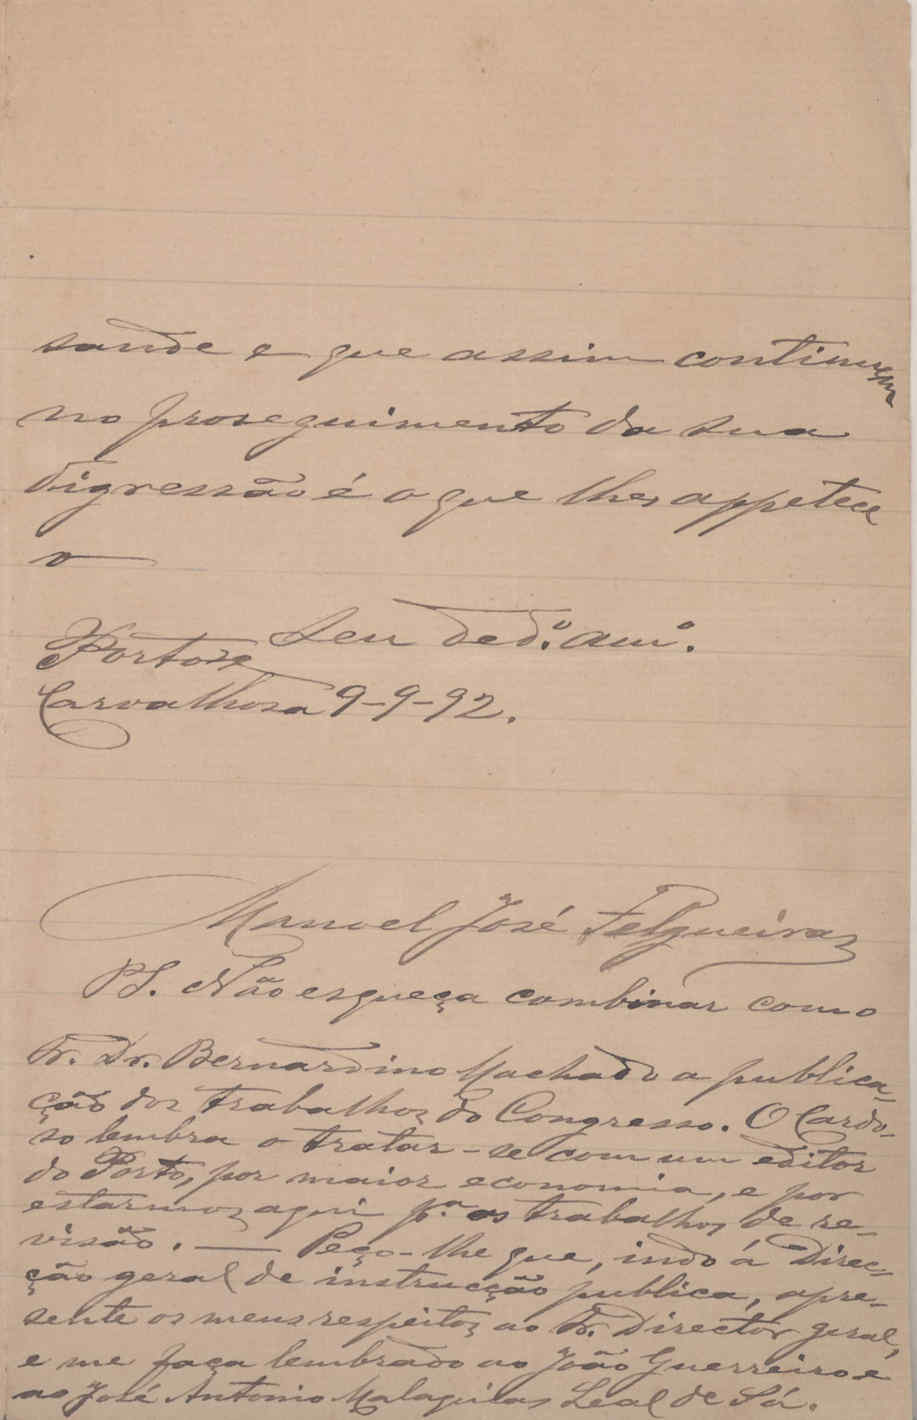 saude e que assim continuem
no proseguimento da sua
digressão é o que lhes appetece
o
Seu ded.º am.º
Porto
Carvalhosa 9-9-92.
Manoel José Felgueiras
PS. Não esqueça combinar com o
Sr. Dr. Bernardino Machado a publica-
ção dos trabalhos do Congresso. O Cardo-
so lembra o tratar-se com um editor
do Porto, por maior economia, e por
estarmos aqui p.ª os trabalhos de re-
visão. — Peço-lhe que, indo á Direc-
ção geral de instrucção publica, apre-
sente os meus respeitos ao Sr. Director geral,
e me faça lembrado ao João Guerreiro e
ao José Antonio Leal de Sá.